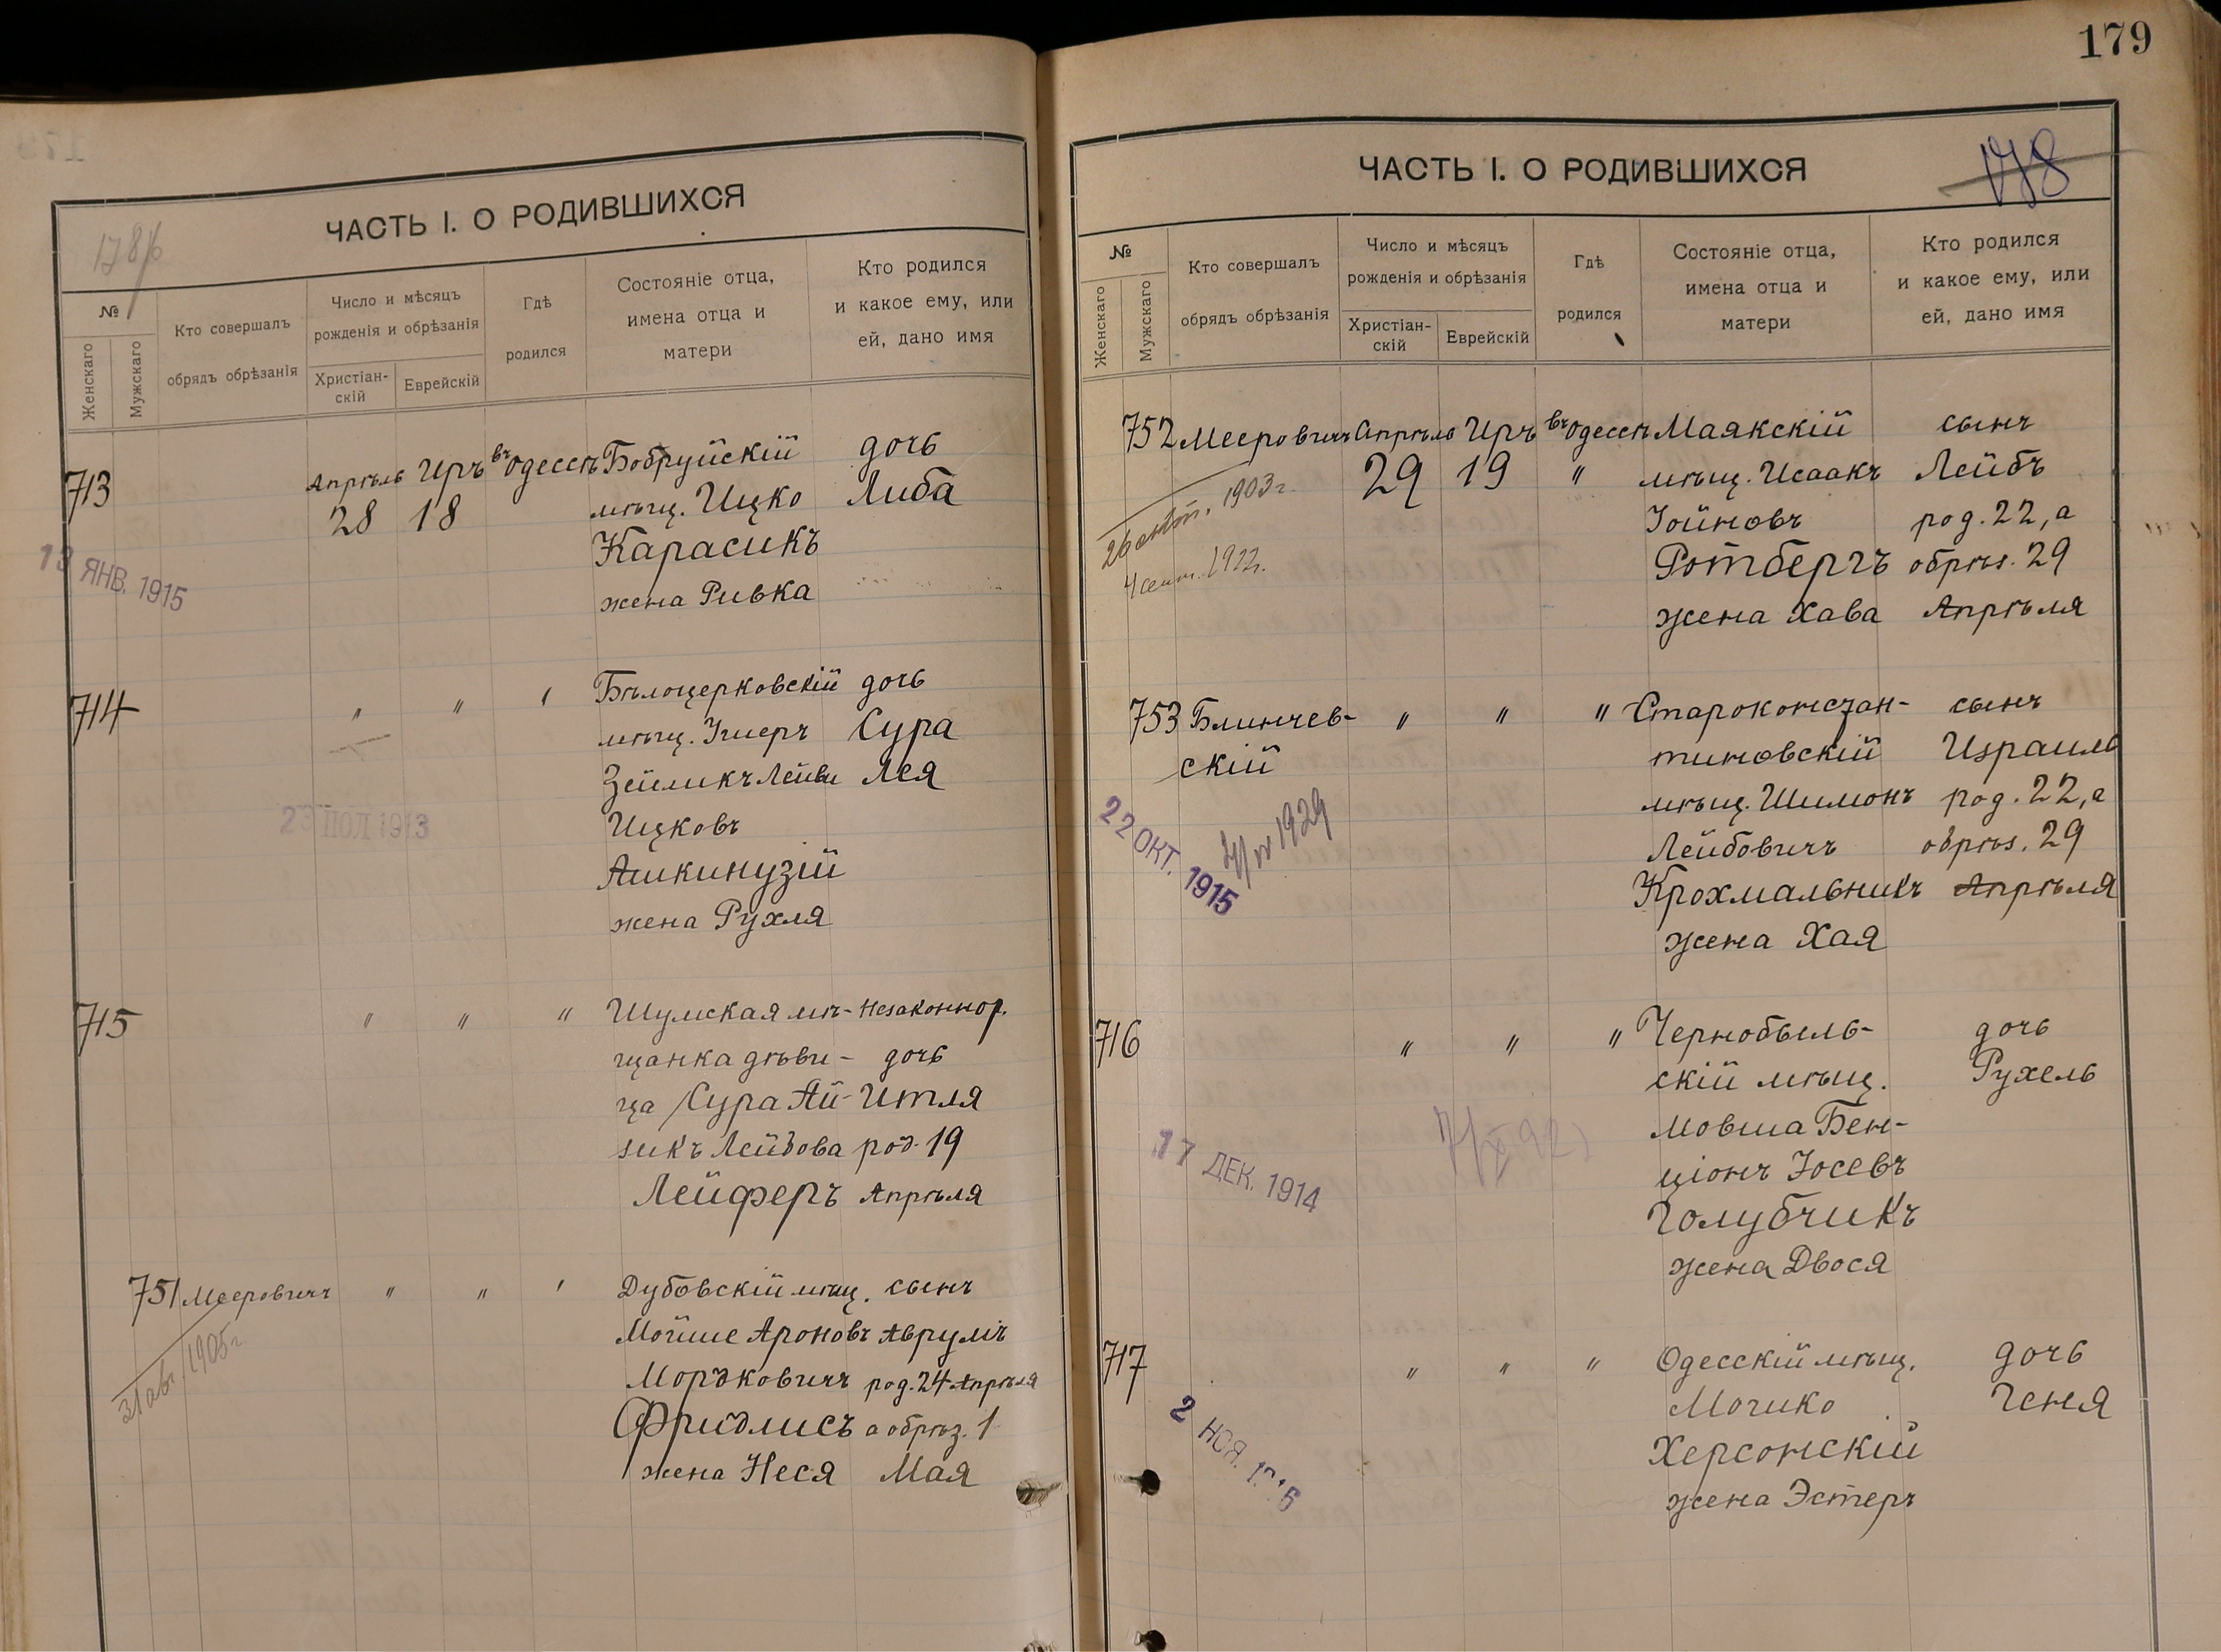 179
ЧАСТЬ I. О РОДИВШИХСЯ
№
Женскаго
Мужскаго
Кто совершалъ
обрядъ обрѣзанія
Число и мѣсяцъ
рожденія и обрѣзанія
Христіан-
скій
Еврейскій
Гдѣ
родился
Состояніе отца,
имена отца и
матери
Кто родился
и какое ему, или
ей, дано имя
713 Апрѣль Иръ въ Одессѣ Бобруйскій дочь
28 18 мѣщ. Ицко Либа
Карасикъ
жена Ривка
13 ЯНВ. 1915
714 " " " Бѣлоцерковскій дочь
мѣщ. Ушеръ Сура
Зейликъ Лейви Лея
Ицковъ
Ашкинузій
жена Рухля
1913
715 " " " Шумская мѣ- Незаконнор.
щанка дѣви- дочь
ца Сура Ай- Итля
зикъ Лейзова род. 19
Лейферъ Апрѣля
751 Мееровичъ " " " Дубовскій мѣщ. сынъ
Мойше Ароновъ Аврумъ
Мордковичъ род. 24 Апрѣля
Фридлисъ а обрѣз. 1
жена Неся Мая
31 авг. 1905 г.
ЧАСТЬ I. О РОДИВШИХСЯ
178
№
Женскаго
Мужскаго
Кто совершалъ
обрядъ обрѣзанія
Число и мѣсяцъ
рожденія и обрѣзанія
Христіан-
скій
Еврейскій
Гдѣ
родился
Состояніе отца,
имена отца и
матери
Кто родился
и какое ему, или
ей, дано имя
752 Мееровичъ Апрѣль Иръ въ Одессѣ Маякскій сынъ
29 19 " мѣщ. Исаакъ Лейбъ
Іойновъ род. 22, а
Ротбергъ обрѣз. 29
жена Хава Апрѣля
1903 г.
4 сент. 1922.
753 Блинчев- " " " Староконстан- сынъ
скій тиновскій Израиль
мѣщ. Шимонъ род. 22, а
Лейбовичъ обрѣз. 29
Крохмальникъ Апрѣля
жена Хая
22 ОКТ. 1915
1929
716 " " " Чернобыль- дочь
скій мѣщ. Рухель
Мовша Бен-
ціонъ Іосевъ
Голубчикъ
жена Двося
17 ДЕК. 1914
717 " " " Одесскій мѣщ. дочь
Мошко Геня
Херсонскій
жена Эстеръ
2 НОЯ.